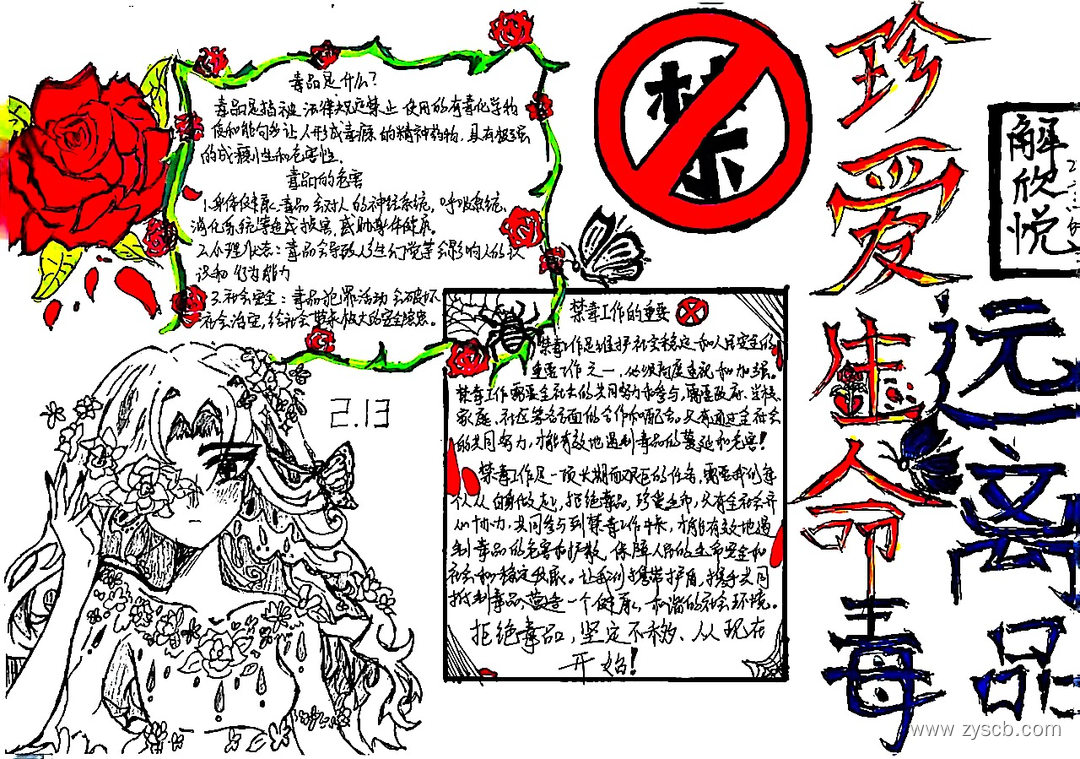 毒品是什么?
毒品是指被法律规定禁止使用的有毒化学物
质和能够让人形成毒源的精神药物,具有极强
的成瘾性和危害性.
毒品的危害
1.身体健康:毒品会对人的神经系统,呼吸系统,
消化系统等造成损害,威胁身体健康.
2.心理状态:毒品会导致人产生幻觉等会影响人的认
识和行为能力
3.社会安全:毒品犯罪活动会破坏
社会治安,给社会带来极大的安全隐患.
禁
珍爱生命
远离毒品
解欣悦
2.13
禁毒工作的重要
禁毒工作是维护社交稳定和人民安全的
重要工作之一,必须高度重视和加强。
禁毒工作需要全社会的共同努力和参与,需要政府、学校、
家庭、社区等各方面的合作和配合。只有通过全社会
的共同努力,才能有效地遏制毒品的蔓延和危害!
禁毒工作是一项长期而艰巨的任务,需要我们每
个人从自身做起,拒绝毒品,珍爱生命,只有全社会齐
心协力,共同参与到禁毒工作中来,才能有效地遏
制毒品的危害和扩散、保障人民的生命安全和
社会和稳定发展。让我们携带护盾,携手共同
抵制毒品,营造一个健康、和谐的社会环境。
拒绝毒品,坚定不移、从现在
开始!
www.zyscb.com